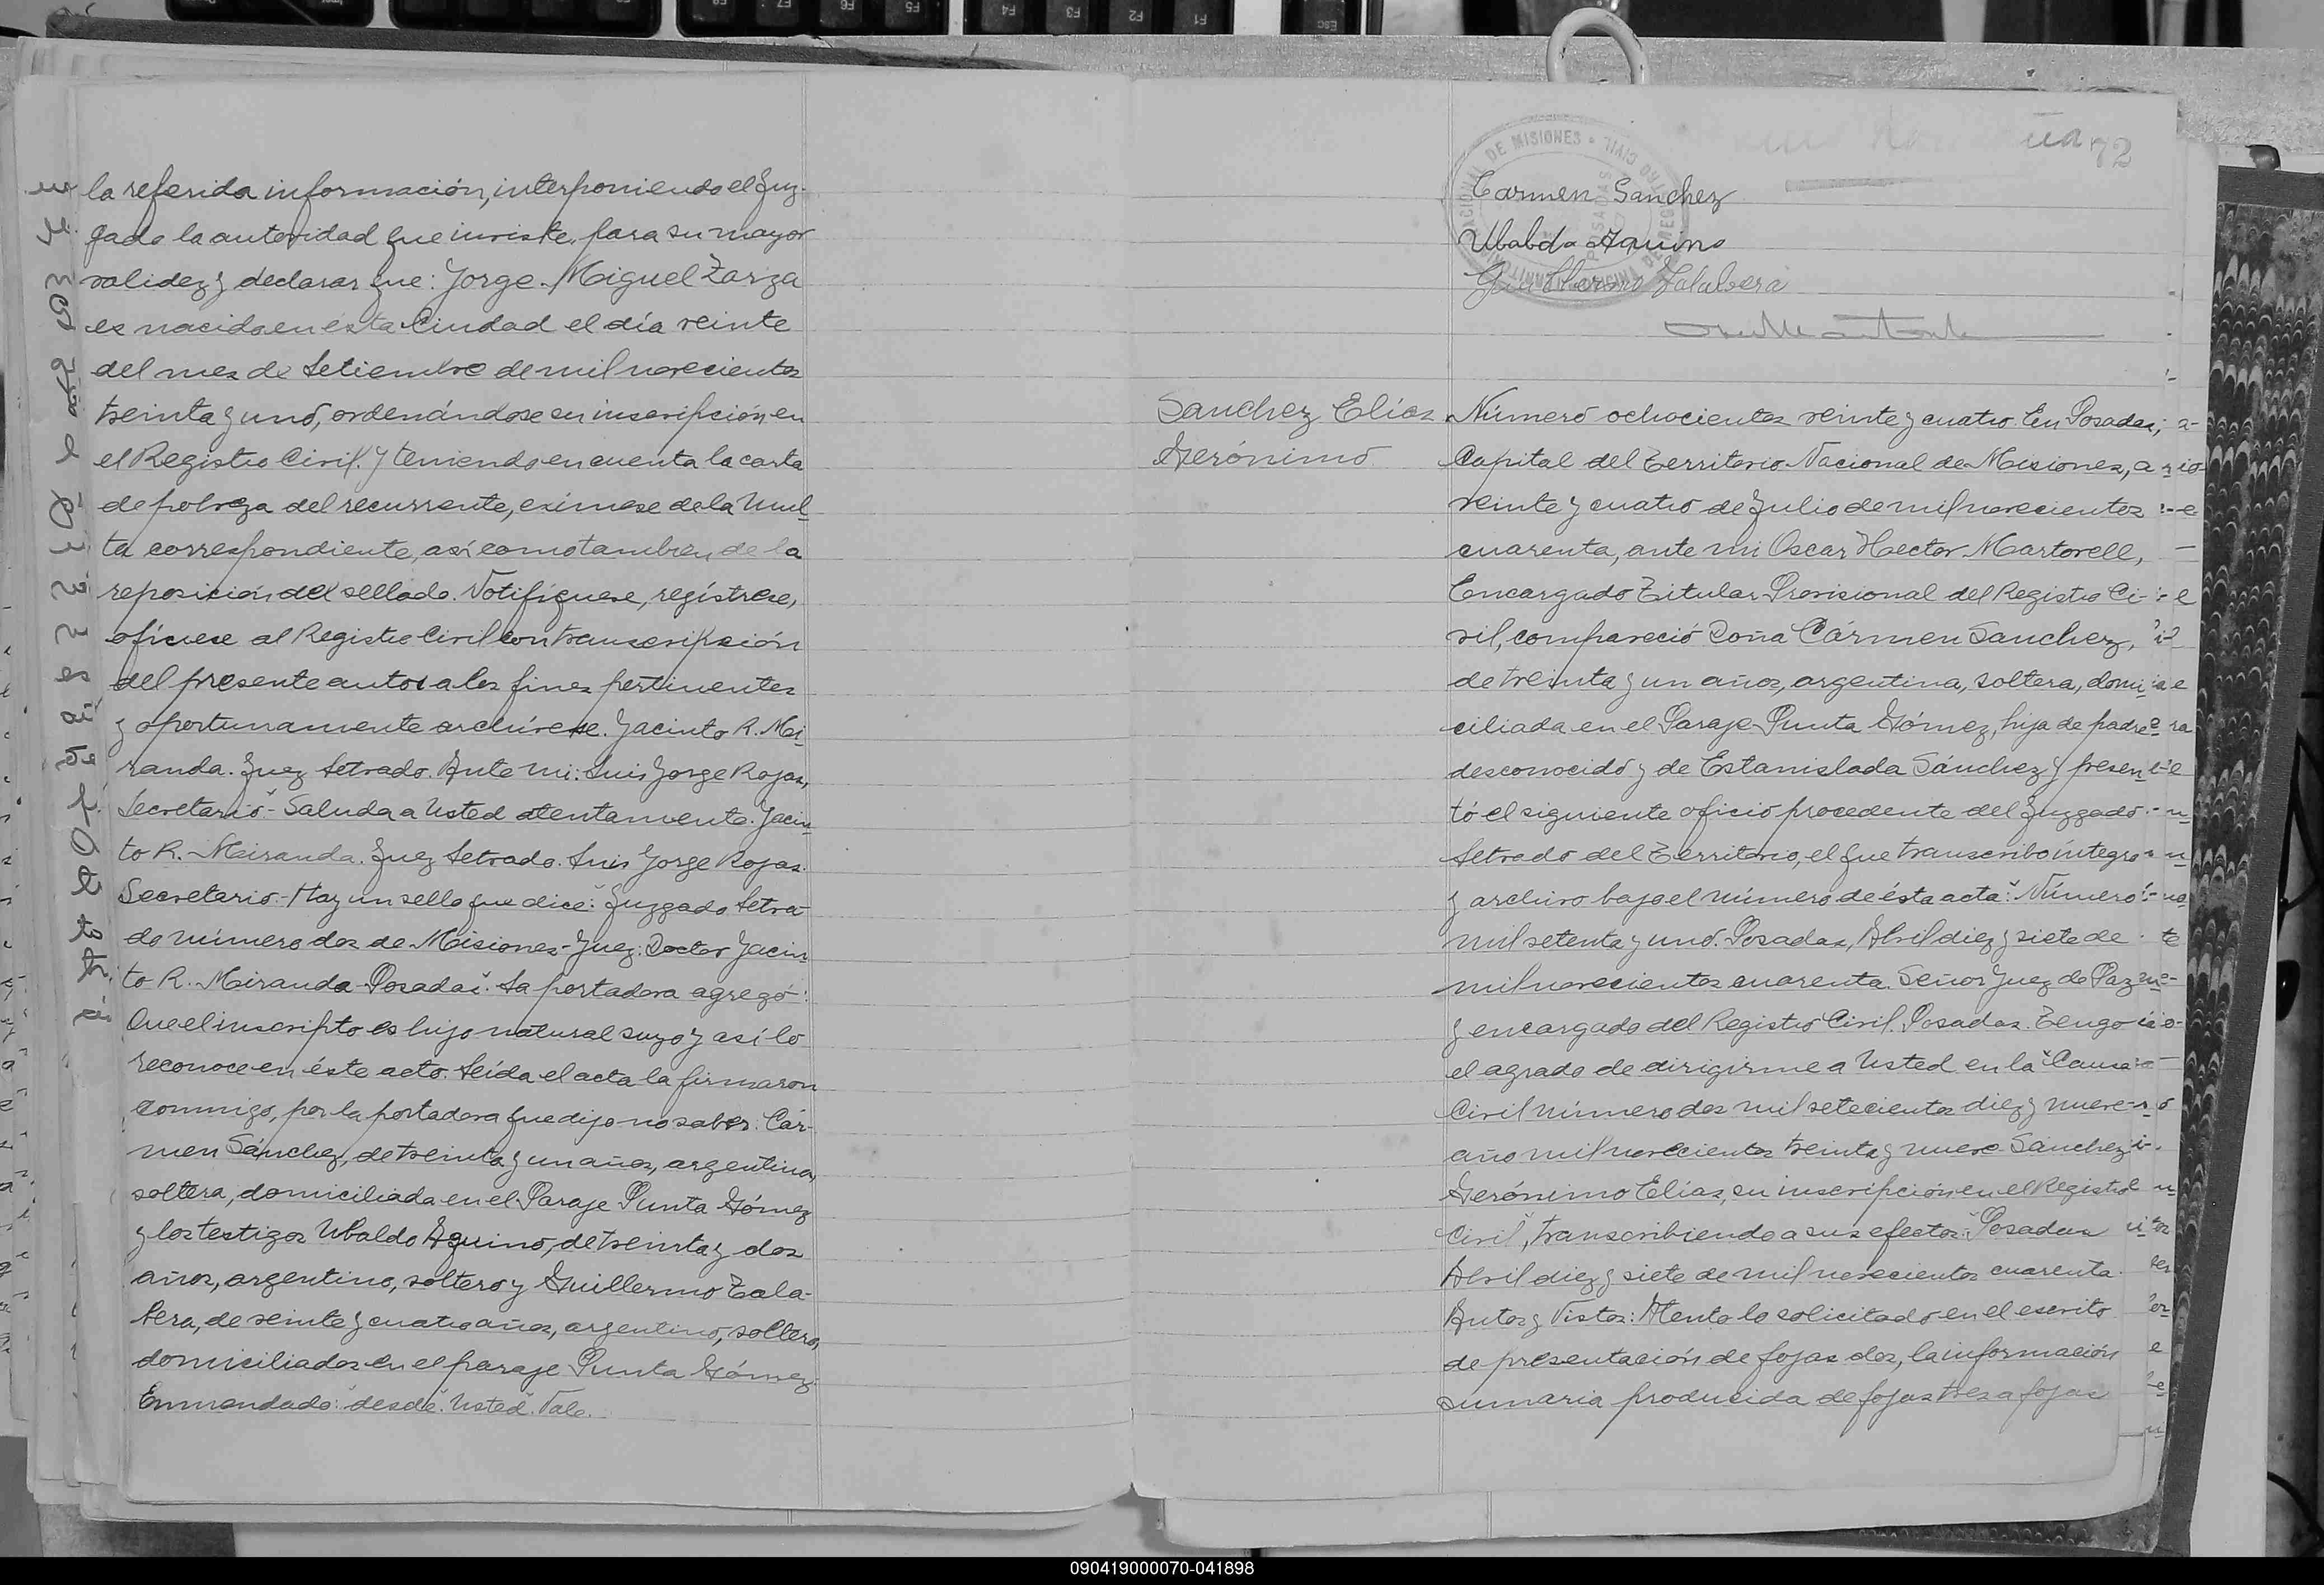 la referida información, interponiendo el Juz-
gado la autoridad que inviste, para su mayor
validez y declarar que: Jorge Miguel Zarza
es nacido en ésta Ciudad el día veinte
del mes de Setiembre de mil novecientos
treinta y uno, ordenándose su inscripción en
el Registro Civil. Y teniendo en cuenta la carta
de pobreza del recurrente, exímese de la mul-
ta correspondiente, así como tambien, de la
reposición del sellado. Notifíquese, regístrese,
ofíciese al Registro Civil con transcripción
del presente auto a los fines pertinentes
y oportunamente archívese. Jacinto R. Mi-
randa. Juez Letrado. Ante mi: Luis Jorge Rojas,
Secretario"- Saluda a Usted atentamente. Jacin-
to R. Miranda. Juez Letrado. Luis Jorge Rojas.
Secretario.- Hay un sello que dice: "Juzgado Letra-
do número dos de Misiones- Juez: Doctor Jacin-
to R. Miranda- Posadas". La portadora agregó:
Que el inscripto es hijo natural suyo y así lo
reconoce en éste acto. Leída el acta la firmaron
conmigo, por la portadora que dijo no saber: Cár-
men Sánchez, de treinta y un años, argentina,
soltera, domiciliada en el Paraje Punta Gómez
y los testigos Ubaldo Aquino, de treinta y dos
años, argentino, soltero y Guillermo Tala-
bera, de veinte y cuatro años, argentino, soltero,
domiciliados en el paraje Punta Gómez.
Enmendado: "desde". Usted. Vale.
72
NACIONAL DE MISIONES • REGISTRO CIVIL
POSADAS
OFICINA
Carmen Sanchez
Ubaldo Aquino
Guillermo Talabera
Sanchez Elias
Gerónimo
Número ochocientos veinte y cuatro. En Posadas,
Capital del Territorio Nacional de Misiones, a
veinte y cuatro de Julio de mil novecientos
cuarenta, ante mi Oscar Hector Martorell,
Encargado Titular Provisional del Registro Ci-
vil, compareció Doña Cármen Sanchez,
de treinta y un años, argentina, soltera, domi-
ciliada en el Paraje Punta Gómez, hija de padre
desconocido y de Estanislada Sánchez y presen-
tó el siguiente oficio procedente del Juzgado
Letrado del Territorio, el que transcribo íntegro
y archivo bajo el número de ésta acta: "Número
mil setenta y uno. Posadas, Abril diez y siete de
mil novecientos cuarenta. Señor Juez de Paz
y encargado del Registro Civil. Posadas. Tengo
el agrado de dirigirme a Usted en la "Causa
Civil número dos mil setecientos diez y nueve-
año mil novecientos treinta y nueve- Sánchez
Gerónimo Elías, su inscripción en el Registro
Civil", transcribiendo a sus efectos: "Posadas
Abril diez y siete de mil novecientos cuarenta.
Autos y Vistos: Atento lo solicitado en el escrito
de presentación de fojas dos, la información
sumaria producida de fojas tres a fojas
090419000070-041898